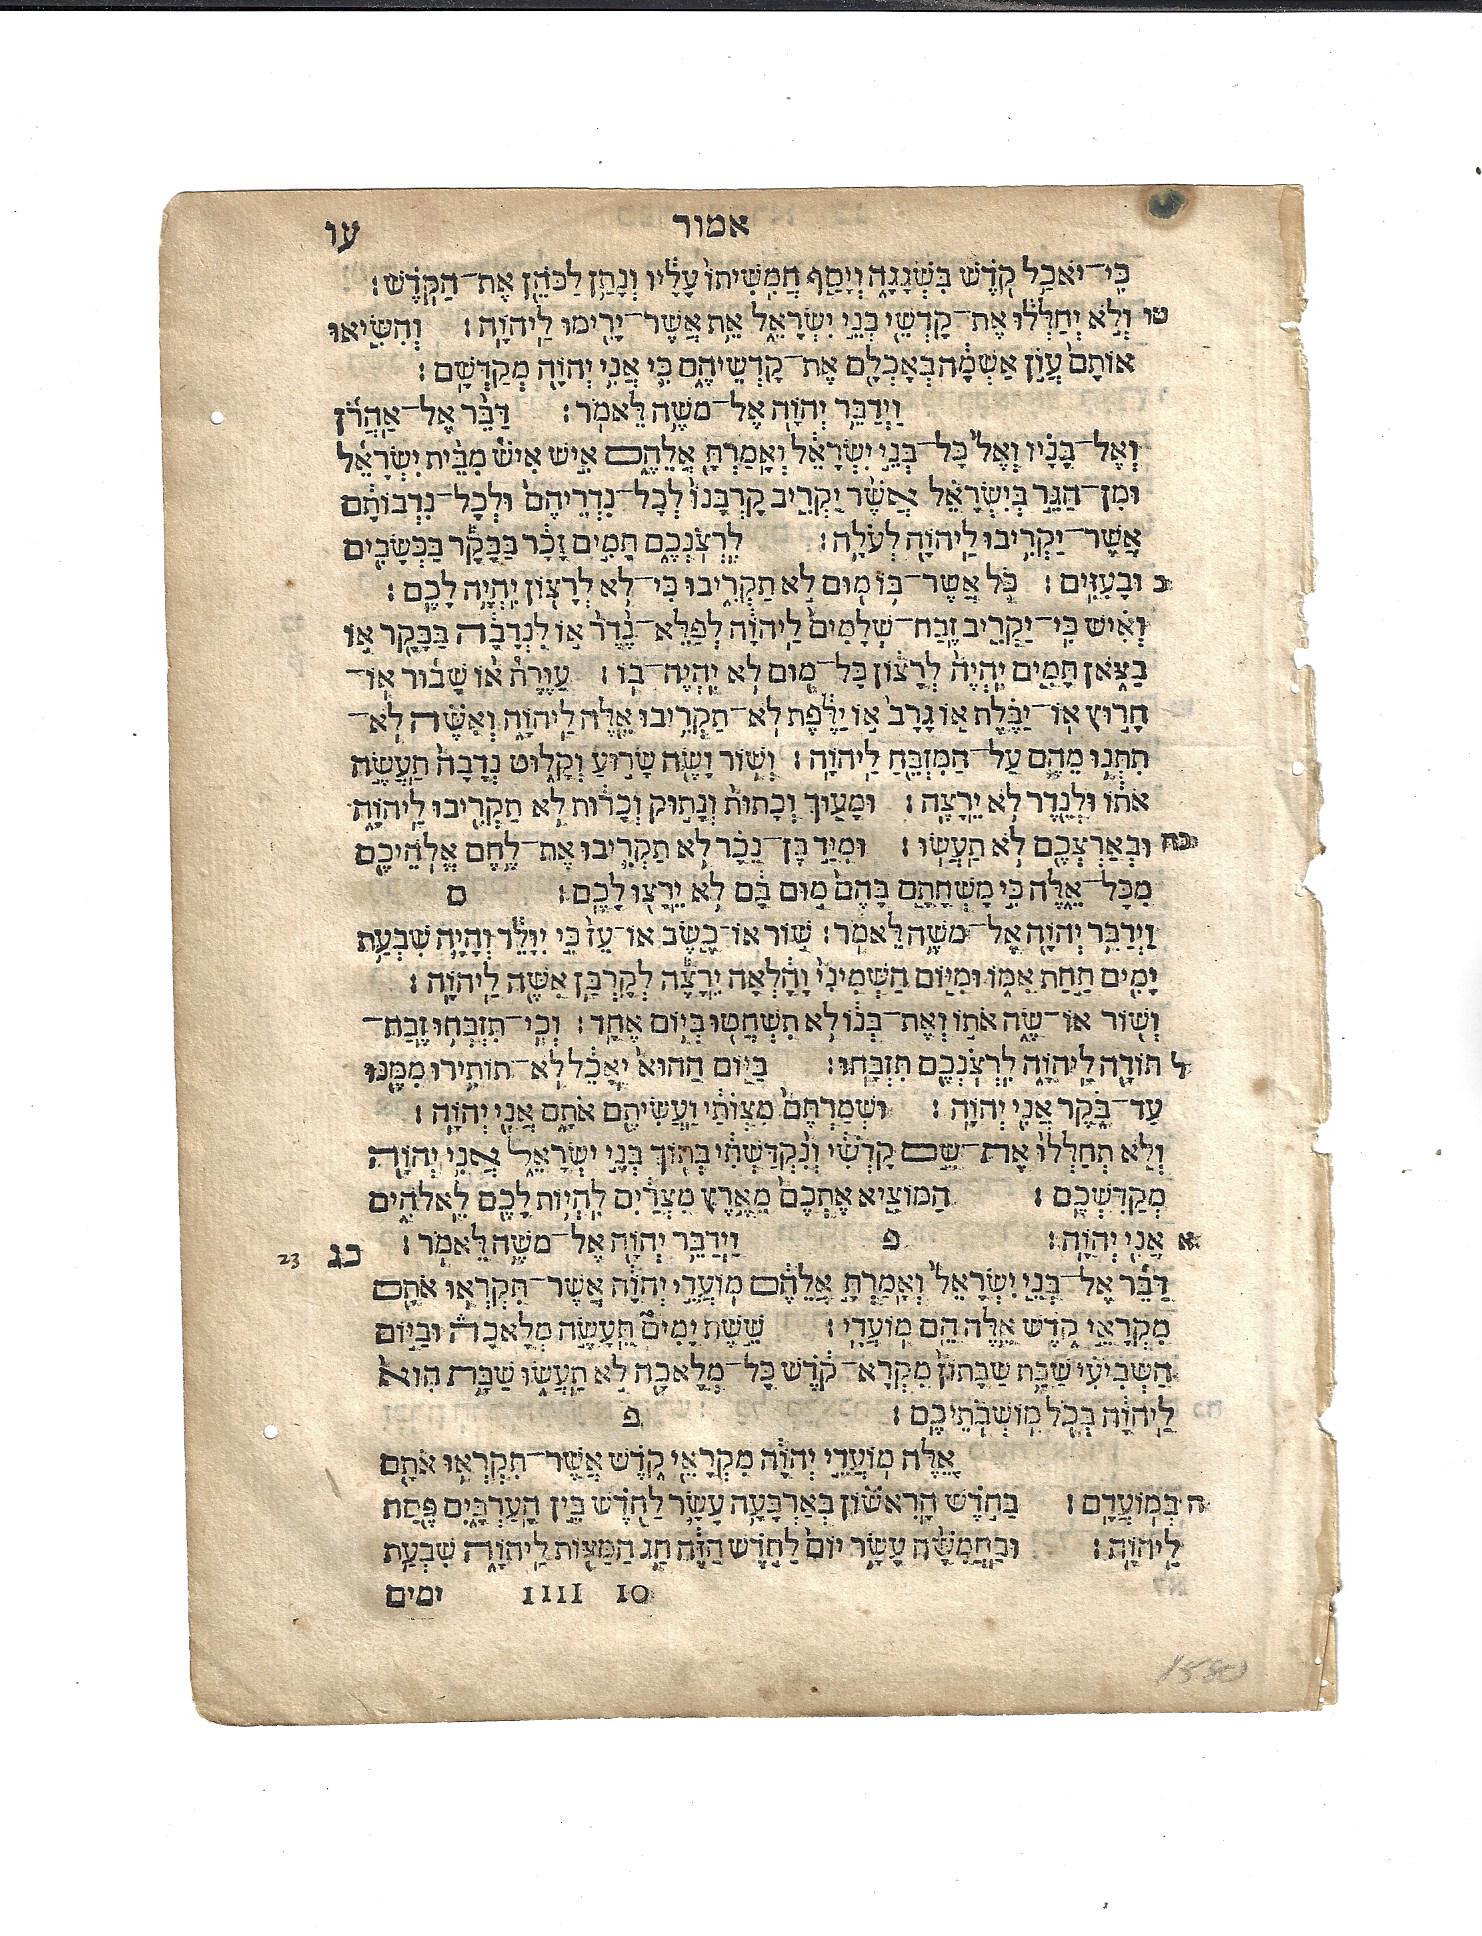 אמור עו
כִּי־יֹאכַל קֹדֶשׁ בִּשְׁגָגָה וְיָסַף חֲמִשִׁיתוֹ עָלָיו וְנָתַן לַכֹּהֵן אֶת־הַקֹּדֶשׁ׃
טו וְלֹא יְחַלְּלוּ אֶת־קָדְשֵׁי בְּנֵי יִשְׂרָאֵל אֵת אֲשֶׁר־יָרִימוּ לַיהוָֹה׃ וְהִשִּׂיאוּ
אוֹתָם עֲוֹן אַשְׁמָה בְּאָכְלָם אֶת־קָדְשֵׁיהֶם כִּי אֲנִי יְהוָֹה מְקַדְּשָׁם׃
וַיְדַבֵּר יְהוָֹה אֶל־מֹשֶׁה לֵּאמֹר׃ דַּבֵּר אֶל־אַהֲרֹן
וְאֶל־בָּנָיו וְאֶל כָּל־בְּנֵי יִשְׂרָאֵל וְאָמַרְתָּ אֲלֵהֶם אִישׁ אִישׁ מִבֵּית יִשְׂרָאֵל
וּמִן־הַגֵּר בְּיִשְׂרָאֵל אֲשֶׁר יַקְרִיב קָרְבָּנוֹ לְכָל־נִדְרֵיהֶם וּלְכָל־נִדְבוֹתָם
אֲשֶׁר־יַקְרִיבוּ לַיהוָֹה לְעֹלָה׃ לִרְצֹנְכֶם תָּמִים זָכָר בַּבָּקָר בַּכְּשָׂבִים
כ וּבָעִזִּים׃ כֹּל אֲשֶׁר־בּוֹ מוּם לֹא תַקְרִיבוּ כִּי־לֹא לְרָצוֹן יִהְיֶה לָכֶם׃
וְאִישׁ כִּי־יַקְרִיב זֶבַח־שְׁלָמִים לַיהוָֹה לְפַלֵּא־נֶדֶר אוֹ לִנְדָבָה בַּבָּקָר אוֹ
בַצֹּאן תָּמִים יִהְיֶה לְרָצוֹן כָּל־מוּם לֹא יִהְיֶה־בּוֹ׃ עַוֶּרֶת אוֹ שָׁבוּר אוֹ־
חָרוּץ אוֹ־יַבֶּלֶת אוֹ גָרָב אוֹ יַלֶּפֶת לֹא־תַקְרִיבוּ אֵלֶּה לַיהוָֹה וְאִשֶּׁה לֹא־
תִתְּנוּ מֵהֶם עַל־הַמִּזְבֵּחַ לַיהוָֹה׃ וְשׁוֹר וָשֶׂה שָׂרוּעַ וְקָלוּט נְדָבָה תַּעֲשֶׂה
אֹתוֹ וּלְנֵדֶר לֹא יֵרָצֶה׃ וּמָעוּךְ וְכָתוּת וְנָתוּק וְכָרוּת לֹא תַקְרִיבוּ לַיהוָֹה
כה וּבְאַרְצְכֶם לֹא תַעֲשׂוּ׃ וּמִיַּד בֶּן־נֵכָר לֹא תַקְרִיבוּ אֶת־לֶחֶם אֱלֹהֵיכֶם
מִכָּל־אֵלֶּה כִּי מָשְׁחָתָם בָּהֶם מוּם בָּם לֹא יֵרָצוּ לָכֶם׃ ס
וַיְדַבֵּר יְהוָֹה אֶל־מֹשֶׁה לֵּאמֹר׃ שׁוֹר אוֹ־כֶשֶׂב אוֹ־עֵז כִּי יִוָּלֵד וְהָיָה שִׁבְעַת
יָמִים תַּחַת אִמּוֹ וּמִיּוֹם הַשְּׁמִינִי וָהָלְאָה יֵרָצֶה לְקָרְבַּן אִשֶּׁה לַיהוָֹה׃
וְשׁוֹר אוֹ־שֶׂה אֹתוֹ וְאֶת־בְּנוֹ לֹא תִשְׁחֲטוּ בְּיוֹם אֶחָד׃ וְכִי־תִזְבְּחוּ זֶבַח־
ל תּוֹדָה לַיהוָֹה לִרְצֹנְכֶם תִּזְבָּחוּ׃ בַּיּוֹם הַהוּא יֵאָכֵל לֹא־תוֹתִירוּ מִמֶּנּוּ
עַד־בֹּקֶר אֲנִי יְהוָֹה׃ וּשְׁמַרְתֶּם מִצְוֹתַי וַעֲשִׂיתֶם אֹתָם אֲנִי יְהוָֹה׃
וְלֹא תְחַלְּלוּ אֶת־שֵׁם קָדְשִׁי וְנִקְדַּשְׁתִּי בְּתוֹךְ בְּנֵי יִשְׂרָאֵל אֲנִי יְהוָֹה
מְקַדִּשְׁכֶם׃ הַמּוֹצִיא אֶתְכֶם מֵאֶרֶץ מִצְרַיִם לִהְיוֹת לָכֶם לֵאלֹהִים
א אֲנִי יְהוָֹה׃ פ וַיְדַבֵּר יְהוָֹה אֶל־מֹשֶׁה לֵּאמֹר׃ כג 23
דַּבֵּר אֶל־בְּנֵי יִשְׂרָאֵל וְאָמַרְתָּ אֲלֵהֶם מוֹעֲדֵי יְהוָֹה אֲשֶׁר־תִּקְרְאוּ אֹתָם
מִקְרָאֵי קֹדֶשׁ אֵלֶּה הֵם מוֹעֲדָי׃ שֵׁשֶׁת יָמִים תֵּעָשֶׂה מְלָאכָה וּבַיּוֹם
הַשְּׁבִיעִי שַׁבַּת שַׁבָּתוֹן מִקְרָא־קֹדֶשׁ כָּל־מְלָאכָה לֹא תַעֲשׂוּ שַׁבָּת הִוא
לַיהוָֹה בְּכֹל מוֹשְׁבֹתֵיכֶם׃ פ
אֵלֶּה מוֹעֲדֵי יְהוָֹה מִקְרָאֵי קֹדֶשׁ אֲשֶׁר־תִּקְרְאוּ אֹתָם
ה בְּמוֹעֲדָם׃ בַּחֹדֶשׁ הָרִאשׁוֹן בְּאַרְבָּעָה עָשָׂר לַחֹדֶשׁ בֵּין הָעַרְבָּיִם פֶּסַח
לַיהוָֹה׃ וּבַחֲמִשָּׁה עָשָׂר יוֹם לַחֹדֶשׁ הַזֶּה חַג הַמַּצּוֹת לַיהוָֹה שִׁבְעַת
IO IIII ימים
1580